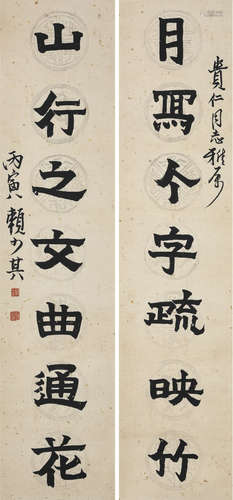 貴仁同志雅属
月寫个字疏映竹
山行之文曲通花
丙寅賴少其